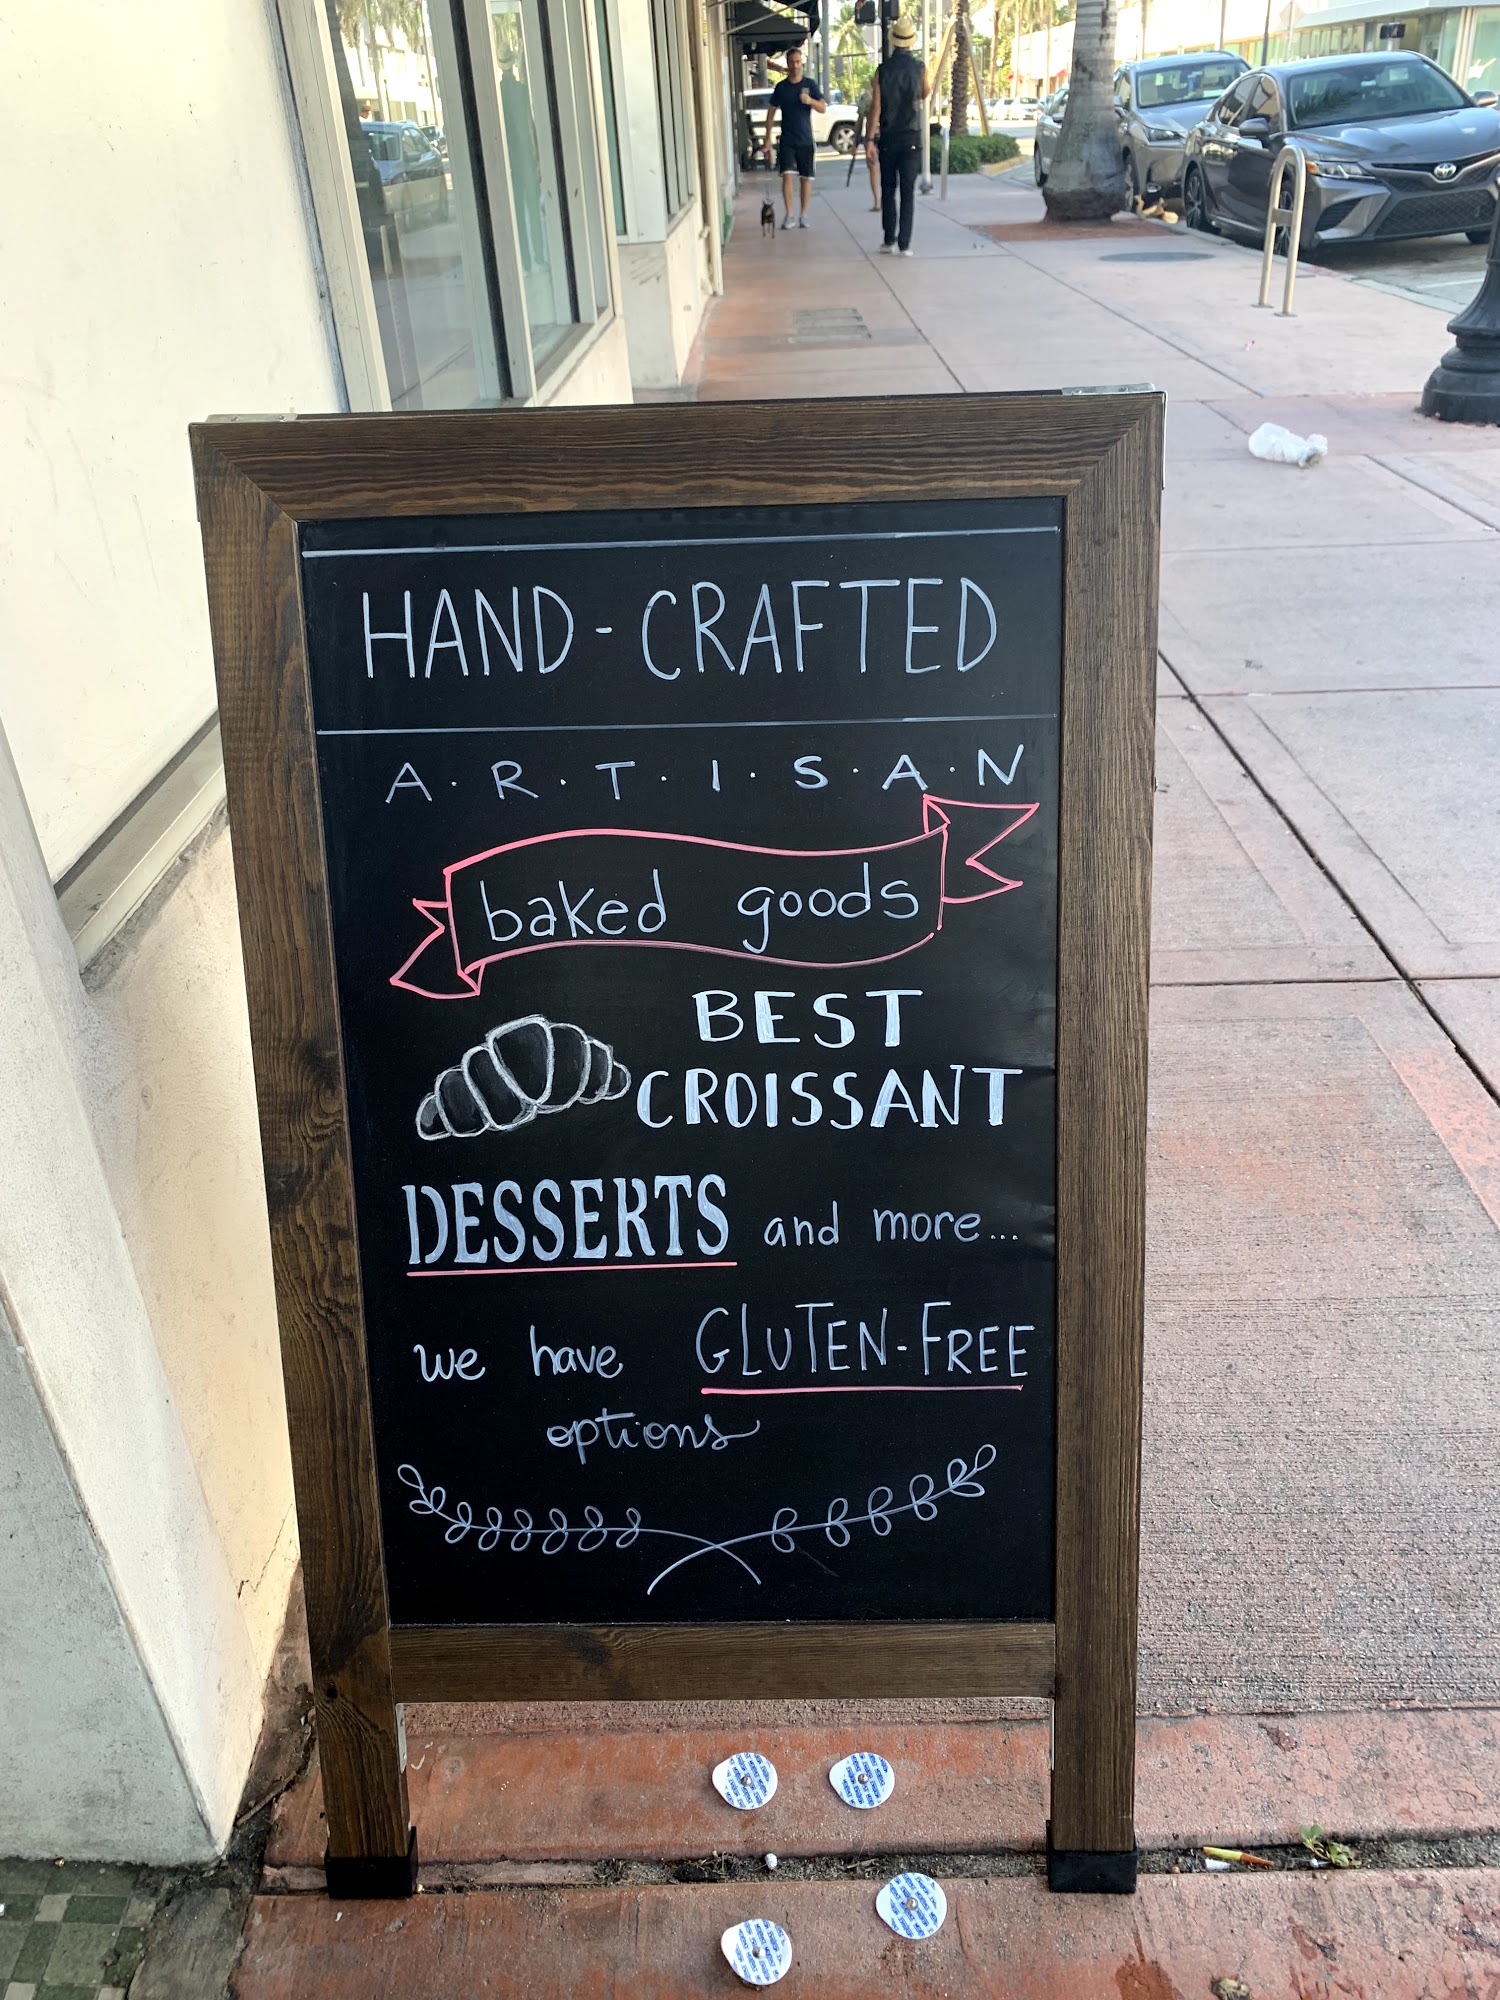 HAND-CRAFTED
A·R·T·I·S·A·N
baked goods
BEST
CROISSANT
DESSERTS and more...
we have GLUTEN-FREE
options